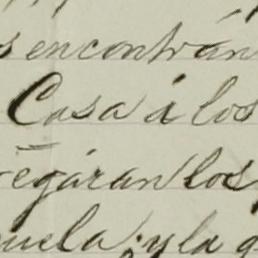 s encontrán
Casa á los
egáran los
uela; y la q